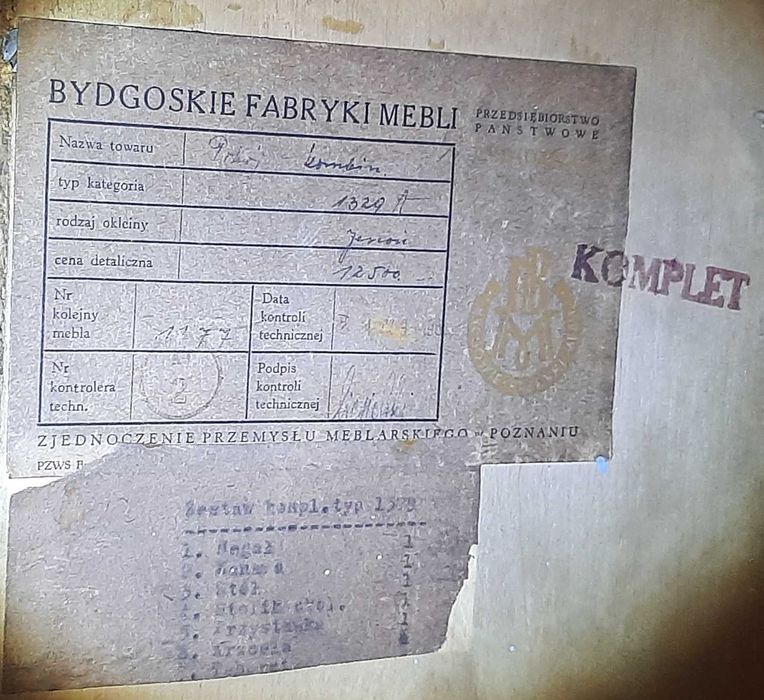 BYDGOSKIE FABRYKI MEBLI
PRZEDSIĘBIORSTWO
PAŃSTWOWE
Nazwa towaru Pokój kombin.
typ kategoria 1329 A
rodzaj okleiny Jesion
cena detaliczna 12500.
Nr
kolejny
mebla 1177
Data
kontroli
technicznej
Nr
kontrolera
techn.
Podpis
kontroli
technicznej
KOMPLET
ZJEDNOCZENIE PRZEMYSŁU MEBLARSKIEGO w POZNANIU
PZWS
Zestaw kompl.typ
1. Regał 1
2. 1
3. Stół 1
4. Stolik okol. 1
5. Przystawka 1
6. Krzesła